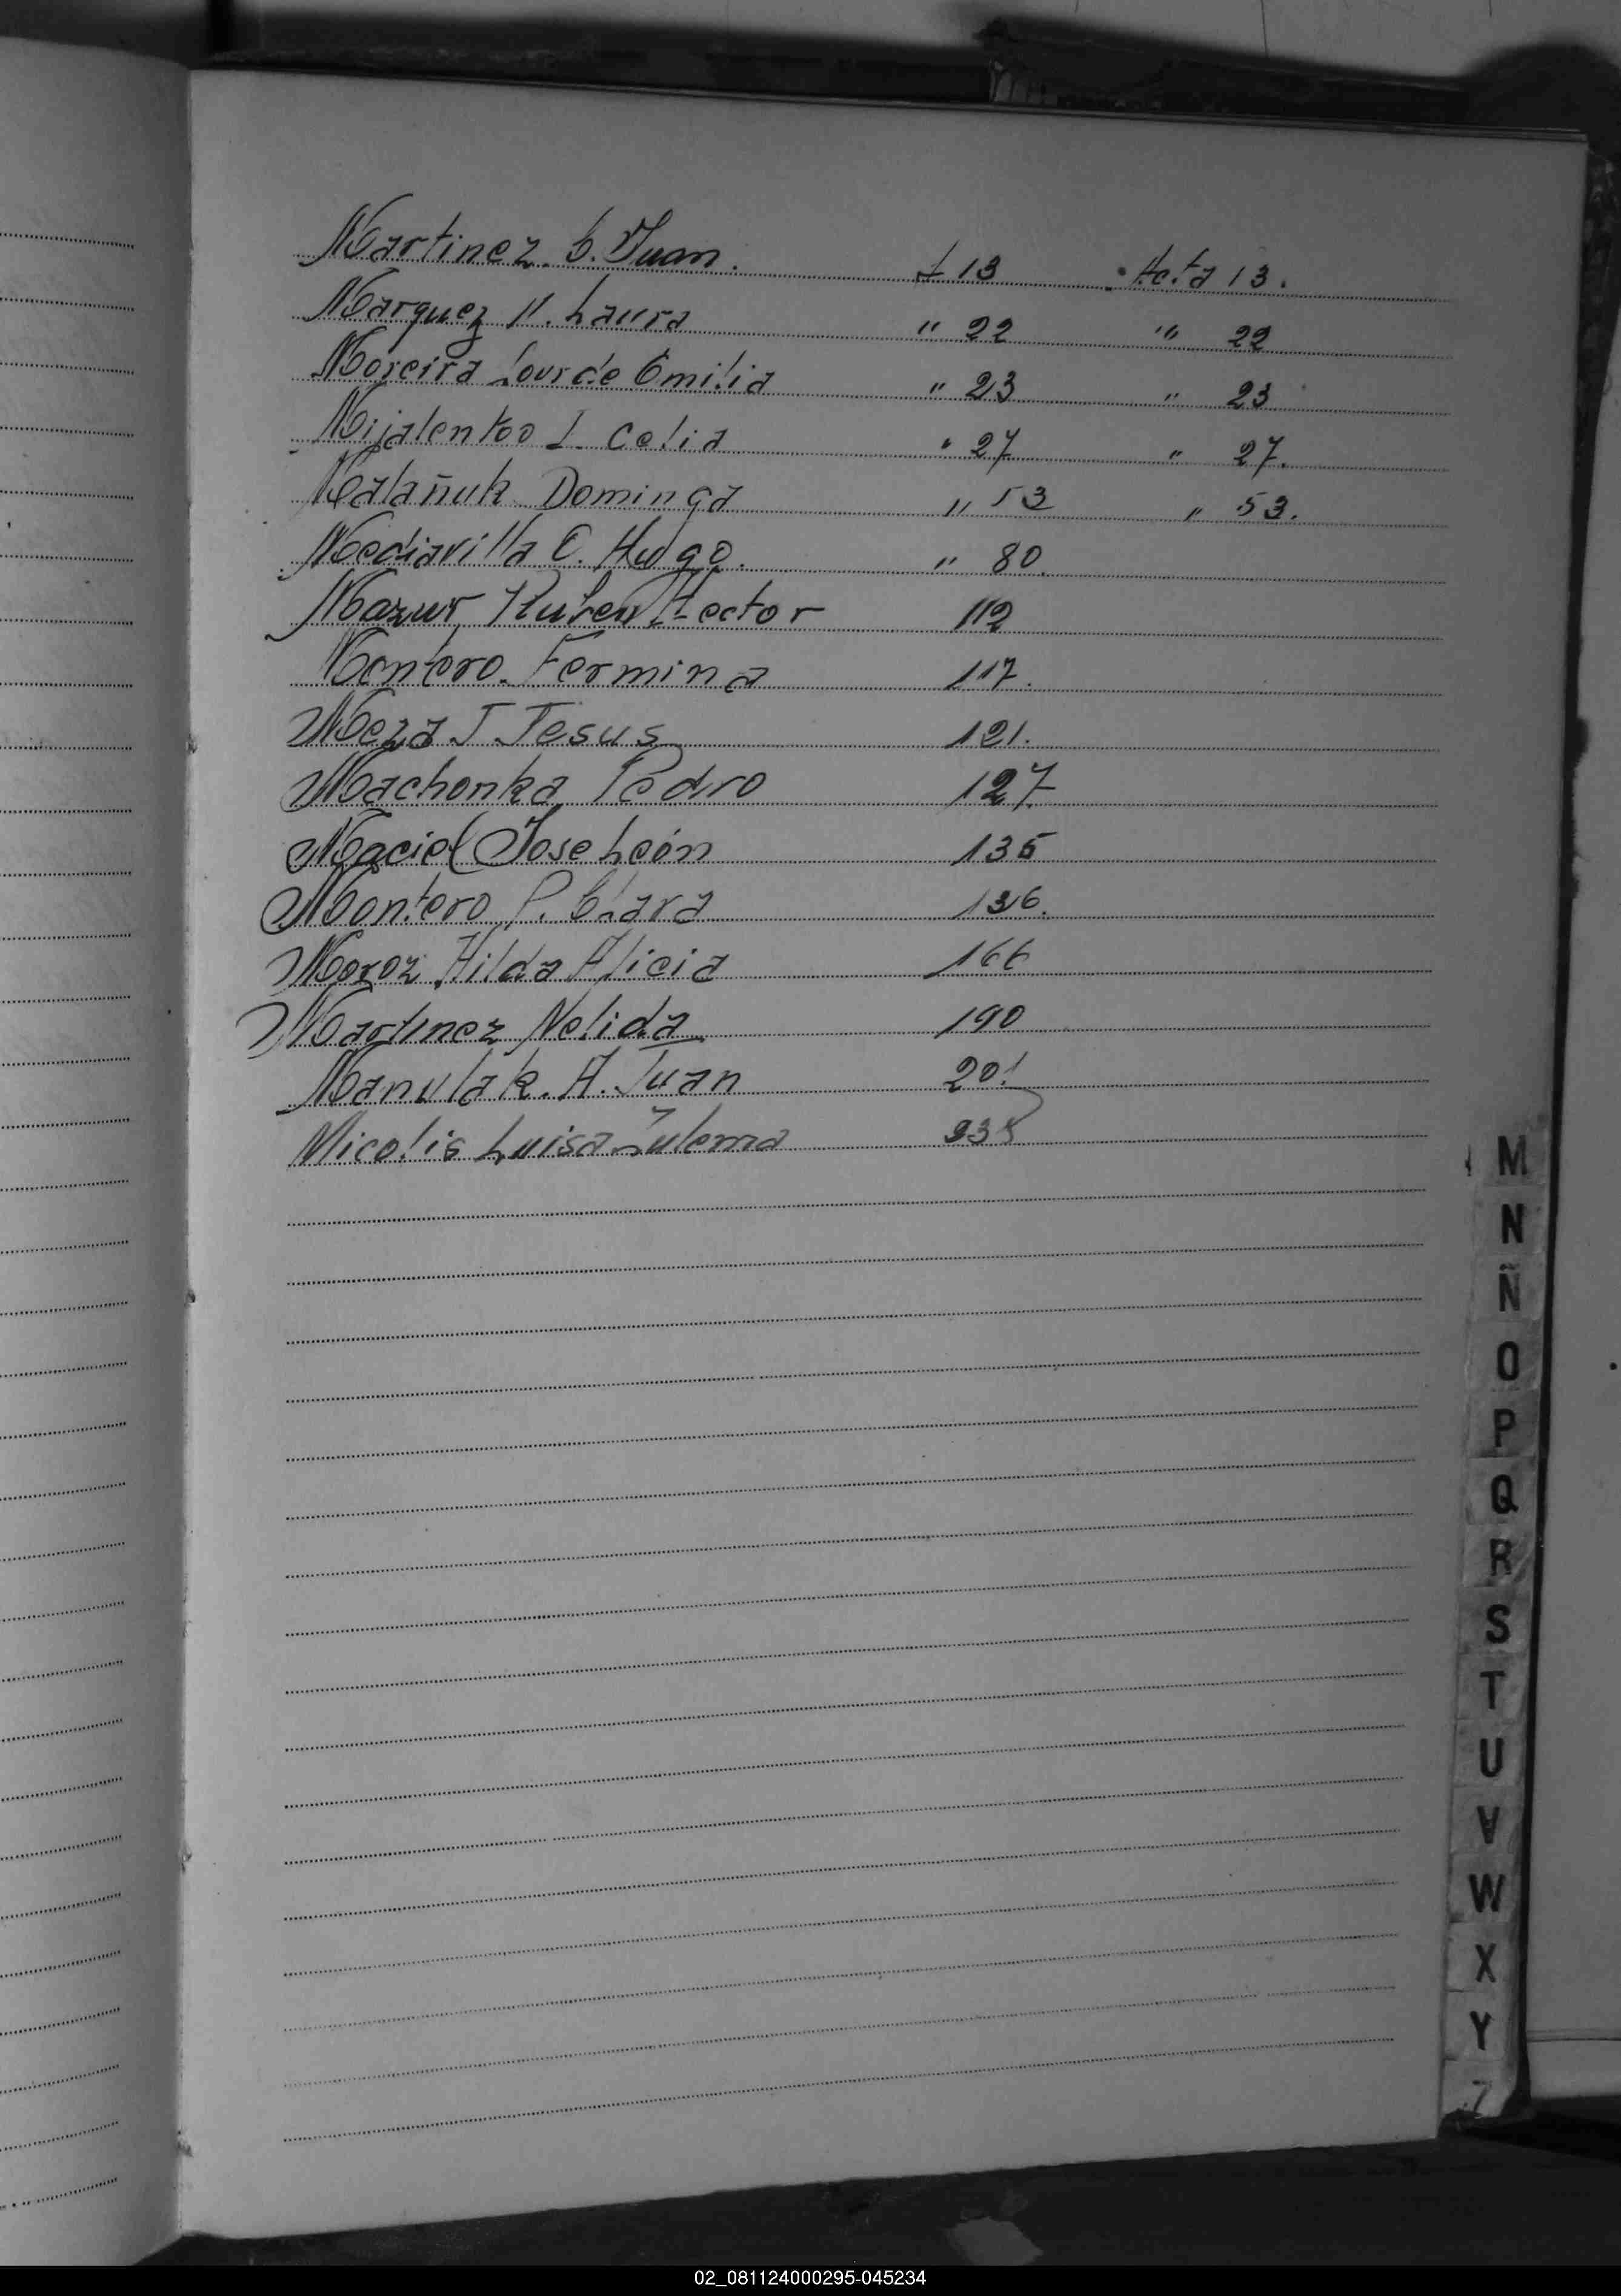 Martinez. C. Juan. f 13 Acta 13.
Marquez N. Laura " 22 " 22
Moreira Lourde Emilia " 23 " 23
Mijalenkoo I. Celia " 27 " 27.
Malañuk Dominga " 53 " 53.
Mediavilla C. Hugo. " 80.
Mazur Ruben Hector 112
Montero. Fermina 117.
Meza J. Jesus 121.
Machonka Pedro 127
Maciel Jose León 135
Montero P. Clara 136.
Moroz Hilda Alicia 166
Martinez Nelida 190
Manulak. A. Juan 201
Micolis Luisa Zulema 235
M
N
Ñ
O
P
Q
R
S
T
U
V
W
X
Y
Z
02_081124000295-045234